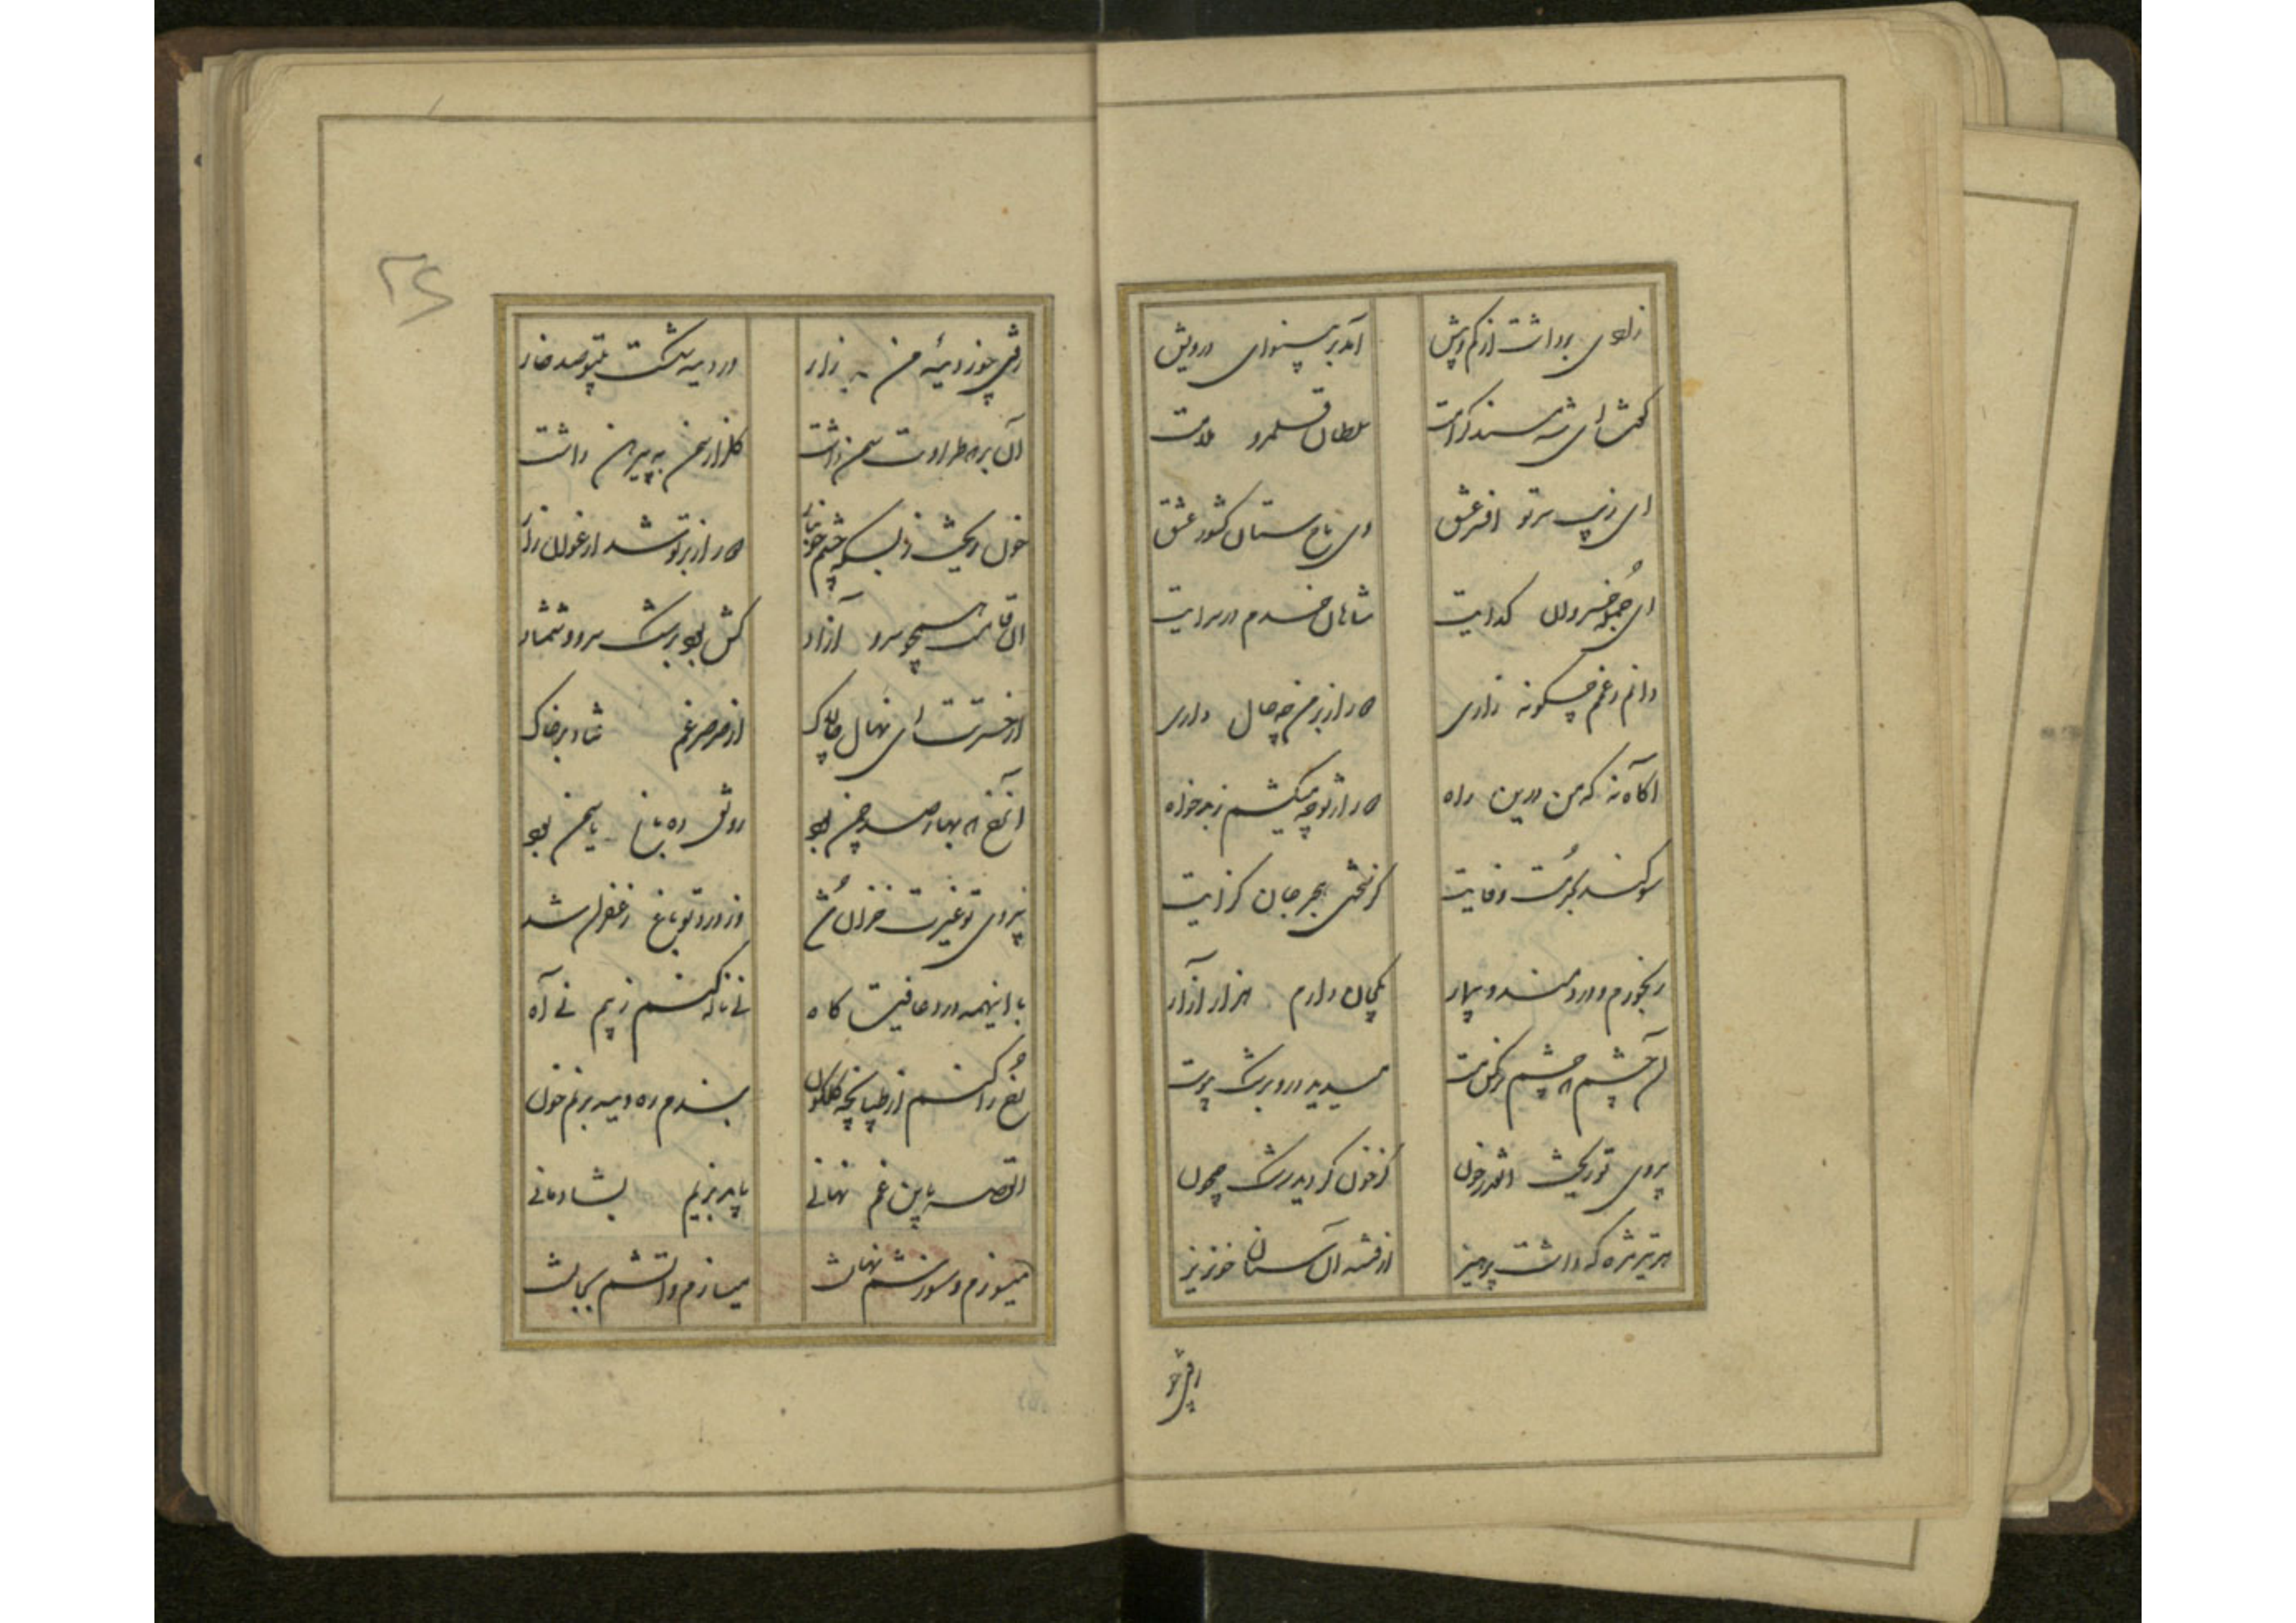 زلعی برداشت از کم و بیش آمد بر بینوای درویش
کفتش ای شه مسند کرامت سلطان قلمرو ملامت
ای زیب سر تو افسر عشق وی باج ستان کشور عشق
ای جمله خسروان کدایت شاهان خدم در سرایت
دانم ز غم چکونه زاری اما از من چه حال داری
آکاه نه که من درین راه از تو چه میکشم ز بدخواه
سوکند بحرمت وفایت کز سختی هجر جان کزایت
رنجورم و دردمند و بیمار یکجان دارم هزار آزار
آن چشم که چشم نرکس مست میدید در و برشک پیوست
بروی تو ریخت انقدر خون کز خون کردید رشک جیحون
هر تیر مژه که داشت پرهیز از فتنه آن سنان خونریز
رفتی چو ز دیده من زار
رفتی چو ز دیده من زار در دیده شکست بیتو صد خار
آن بر که طراوت سمن داشت کلزار سمن به پیرهن داشت
خون ریخت ز بسکه چشم خونبار از بر تو شد ارغوان زار
آن قامت همچو سرو آزاد کش بود برشک سرو و شمشاد
از حسرتت ای نهال چالاک از صرصر غم فتاد بر خاک
آن رخ که بهار صد چمن بود رونق ده باغ یاسمن بود
بروی تو غیرت خزان شد وز درد تو باغ زعفران شد
با اینهمه درد عافیت کاه نی ناله کنم ز بیم نی آه
رخ را کنم از طپانچه کلکون بندم ره دیده بر نم خون
القصه باین غم نهانی با پیر زنم بشادمانی
میسوزم و سوزشم نهانست میسازم و آتشم بجانست